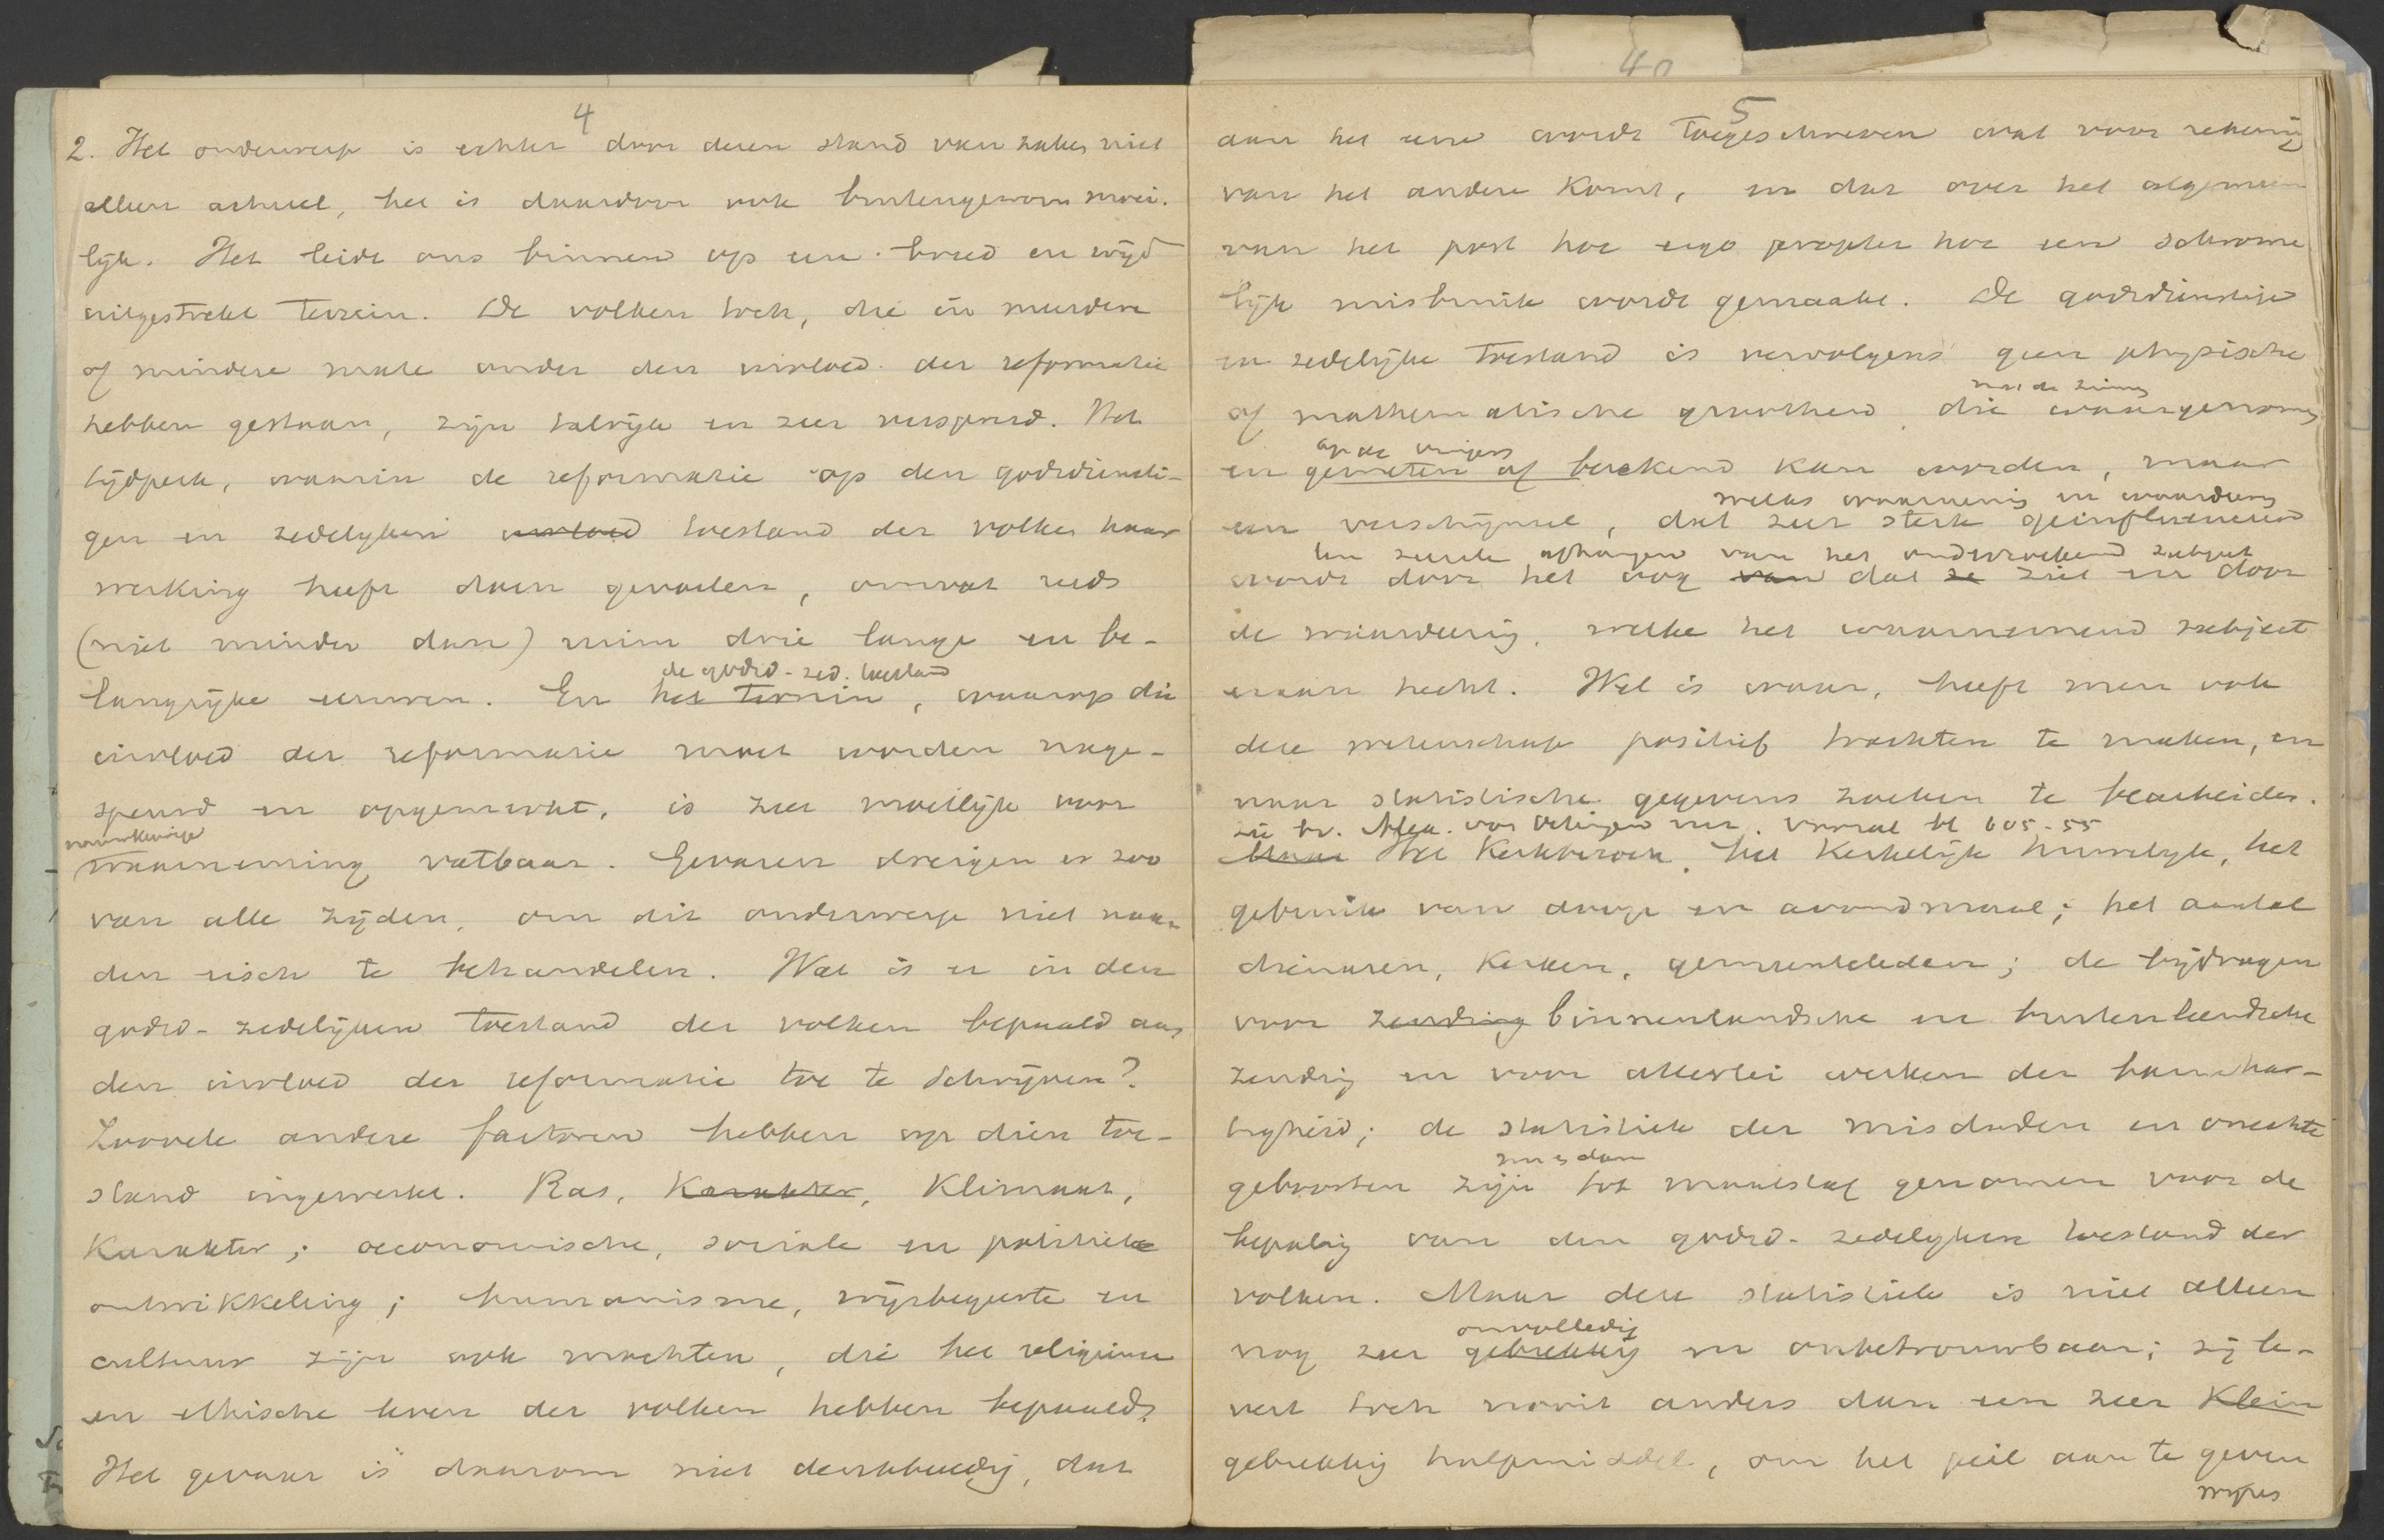 4
2. Het onderwerp is echter door dezen stand van zaken niet
alleen actueel, het is daardoor ook buitengewoon moei-
lijk. Het leidt ons binnen op een breed en wijd
uitgestrekt terrein. De volken toch, die in meerdere
of mindere mate onder den invloed der reformatie
hebben gestaan, zijn talrijk en zeer verspreid. Het
tijdperk, waarin de reformatie op den godsdiensti-
gen en zedelijken invloed toestand der volken haar
werking heeft doen gevoelen, omvat reeds
(niet minder dan) ruim drie lange en be-
de godsd.-zed. toestand
langrijke eeuwen. En het terrein, waarop die
invloed der reformatie moet worden nage-
speurd en opgemerkt, is zeer moeilijk voor
nauwkeurige
waarneming vatbaar. Gevaren dreigen er zoo
van alle zijden, om dit onderwerp niet naar
den eisch te behandelen. Wat is er in den
godsd-zedelijken toestand der volken bepaald aan
den invloed der reformatie toe te schrijven?
Zoovele andere factoren hebben op dien toe-
stand ingewerkt. Ras, Karakter, Klimaat,
Karakter; oeconomische, sociale en politieke
ontwikkeling; humanisme, wijsbegeerte en
cultuur zijn ook machten, die het religieuse
en ethische leven der volken hebben bepaald.
Het gevaar is daarom niet denkbeeldig, dat
40
5
aan het eene wordt toegeschreven wat voor rekening
van het andere komt, en dat over het algemeen
van het post hoc ergo propter hoc een schrome
lijk misbruik wordt gemaakt. De godsdienstige
en zedelijke toestand is vervolgens geen physische
met de zinnen
of mathematische grootheid, die waargenomen
op de vingers
en gemeten of berekend kan worden, maar
welks waarneming en waardeering
een verschijnsel, dat zeer sterk geinfluenceerd
ten zeerste afhangen van het onderzoekend subject
wordt door het oog van dat ze ziet en door
de waardeering, welke het waarnemend subject
eraan hecht. Wel is waar, heeft men ook
deze wetenschap positief trachten te maken, en
naar statistische gegevens zoeken te bearbeiden.
zie bv. Alex. von Oettingen vooral bl 605-55
Maar Het Kerkbezoek, het Kerkelijk huwelijk, het
gebruik van doop en avondmaal; het aantal
dienaren, Kerken, gemeenteleden; de bijdragen
voor zending binnenlandsche en buitenlandsche
zending en voor allerlei werken der barmhar-
tigheid; de statistiek der misdaden en onechte
geboorten zijn tot maatstaf genomen voor de
bepaling van den godsd-zedelijken toestand der
volken. Maar deze statistiek is niet alleen
onvolledig
nog zeer gebrekkig en onbetrouwbaar; zij le-
vert toch nooit anders dan een zeer Klein
gebrekkig hulpmiddel, om het peil aan te geven